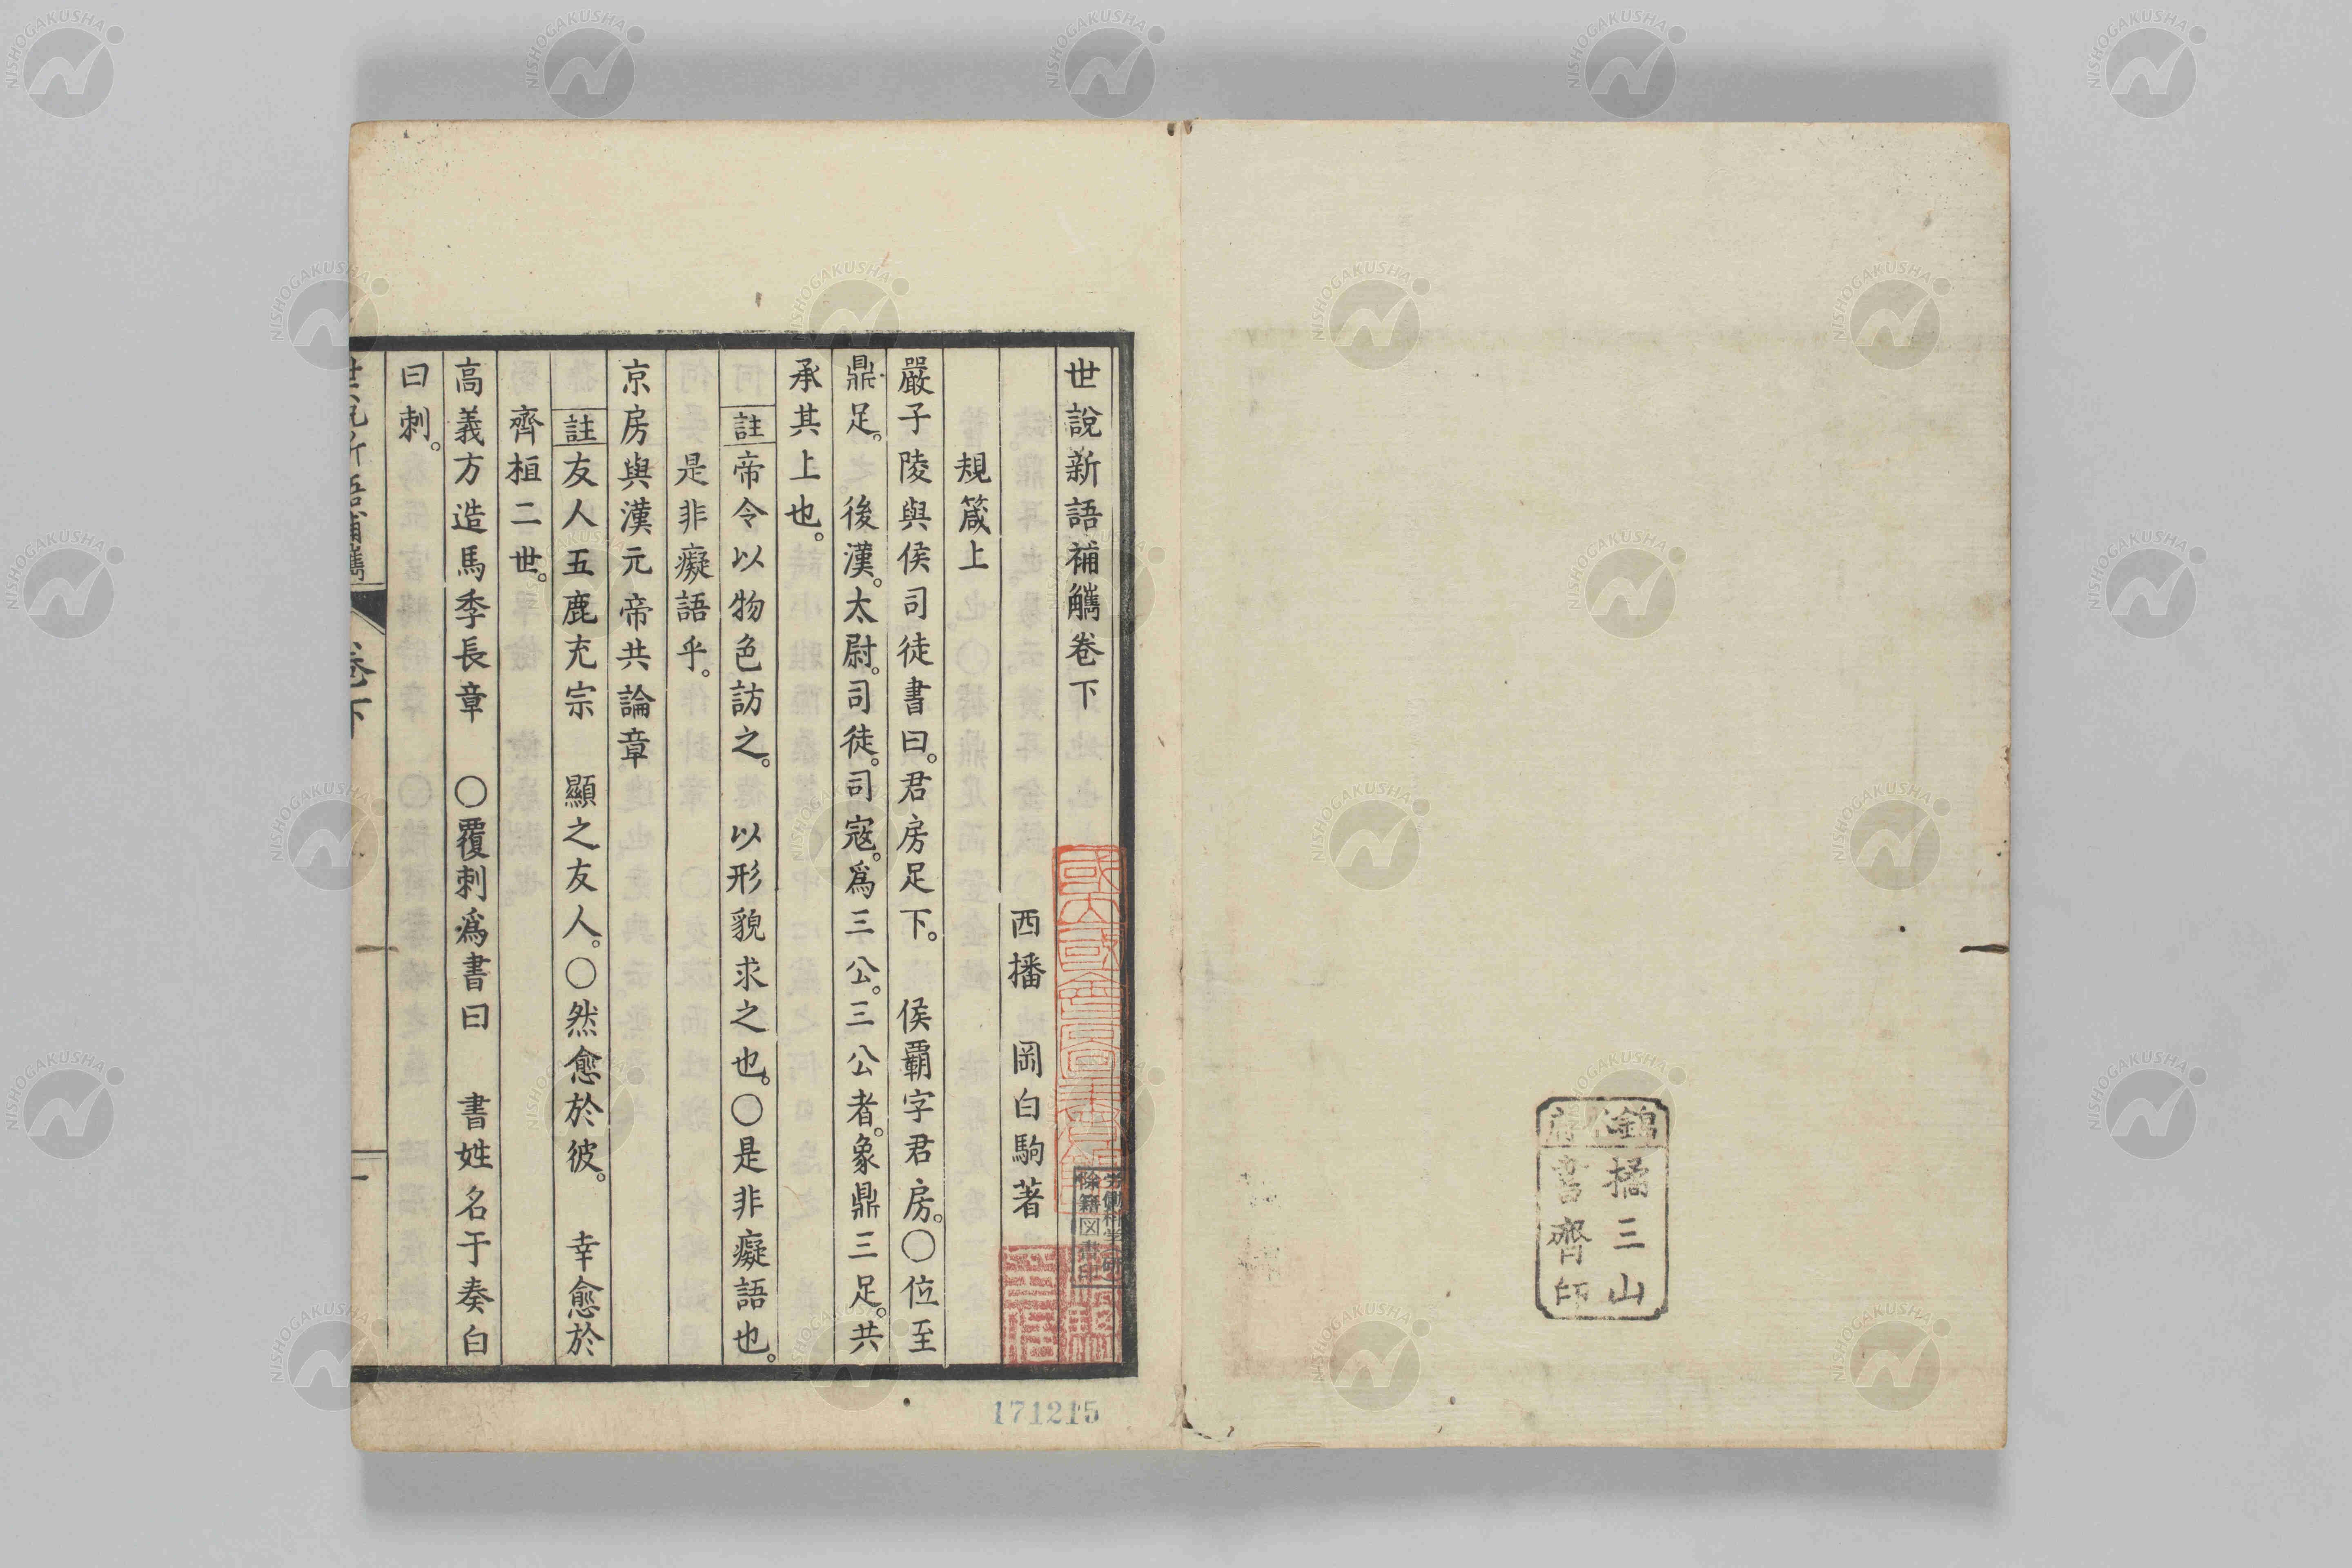 世說新語補觿卷下
西播　岡白駒著
規箴上
嚴子陵與侯司徒書曰。君房足下。　侯霸字君房。〇位至
鼎足。　後漢。太尉。司徒。司寇。爲三公。三公者。象鼎三足。共
承其上也。
註帝令以物色訪之。　以形貌求之也。〇是非癡語也。
是非癡語乎。
京房與漢元帝共論章
註友人五鹿充宗　顯之友人。〇然愈於彼。　幸愈於
齊桓二世。
高義方造馬季長章　〇覆刺爲書曰　書姓名于奏白
曰刺。
卷下
一
171215
橘三山
NISHOGAKUSHA